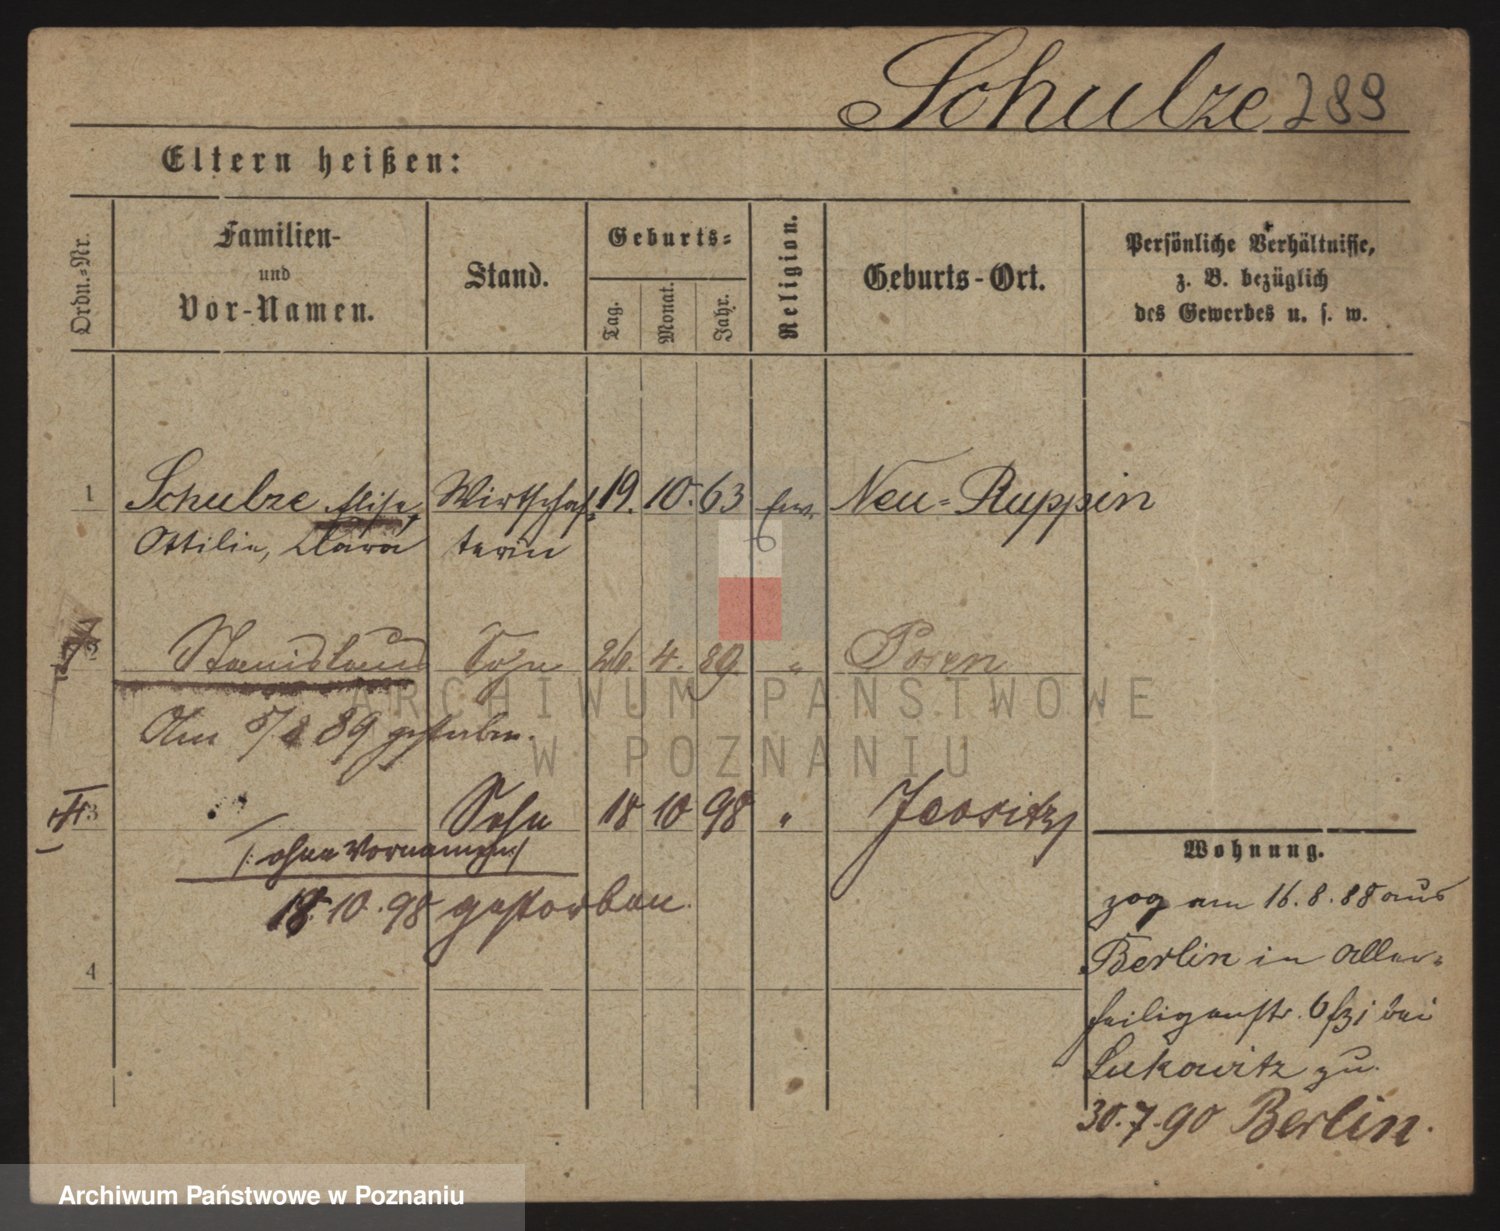 Schulze 289
Eltern heißen:
Ordn.=Nr.
Familien-
und
Vor-Namen.
Stand.
Geburts=
Tag.
Monat.
Jahr.
Religion.
Geburts-Ort.
Persönliche Verhältnisse,
z. B. bezüglich
des Gewerbes u. s. w.
1 Schulze Elise, Wirthschaf= 19. 10. 63 ev. Neu=Ruppin
Ottilie, Clara terin
2 Stanislaus Sohn 26. 4. 89. " Posen
Am 5/8 89 gestorben.
3 Sohn 18 10 98 "
/: ohne Vornamen :/
18. 10. 98 gestorben.
4
Wohnung.
zog am 16. 8. 88 aus
Berlin in Aller=
heiligenstr. 6 bei
Lukowitz zu.
30. 7. 90 Berlin.
ARCHIWUM PAŃSTWOWE
W POZNANIU
Archiwum Państwowe w Poznaniu